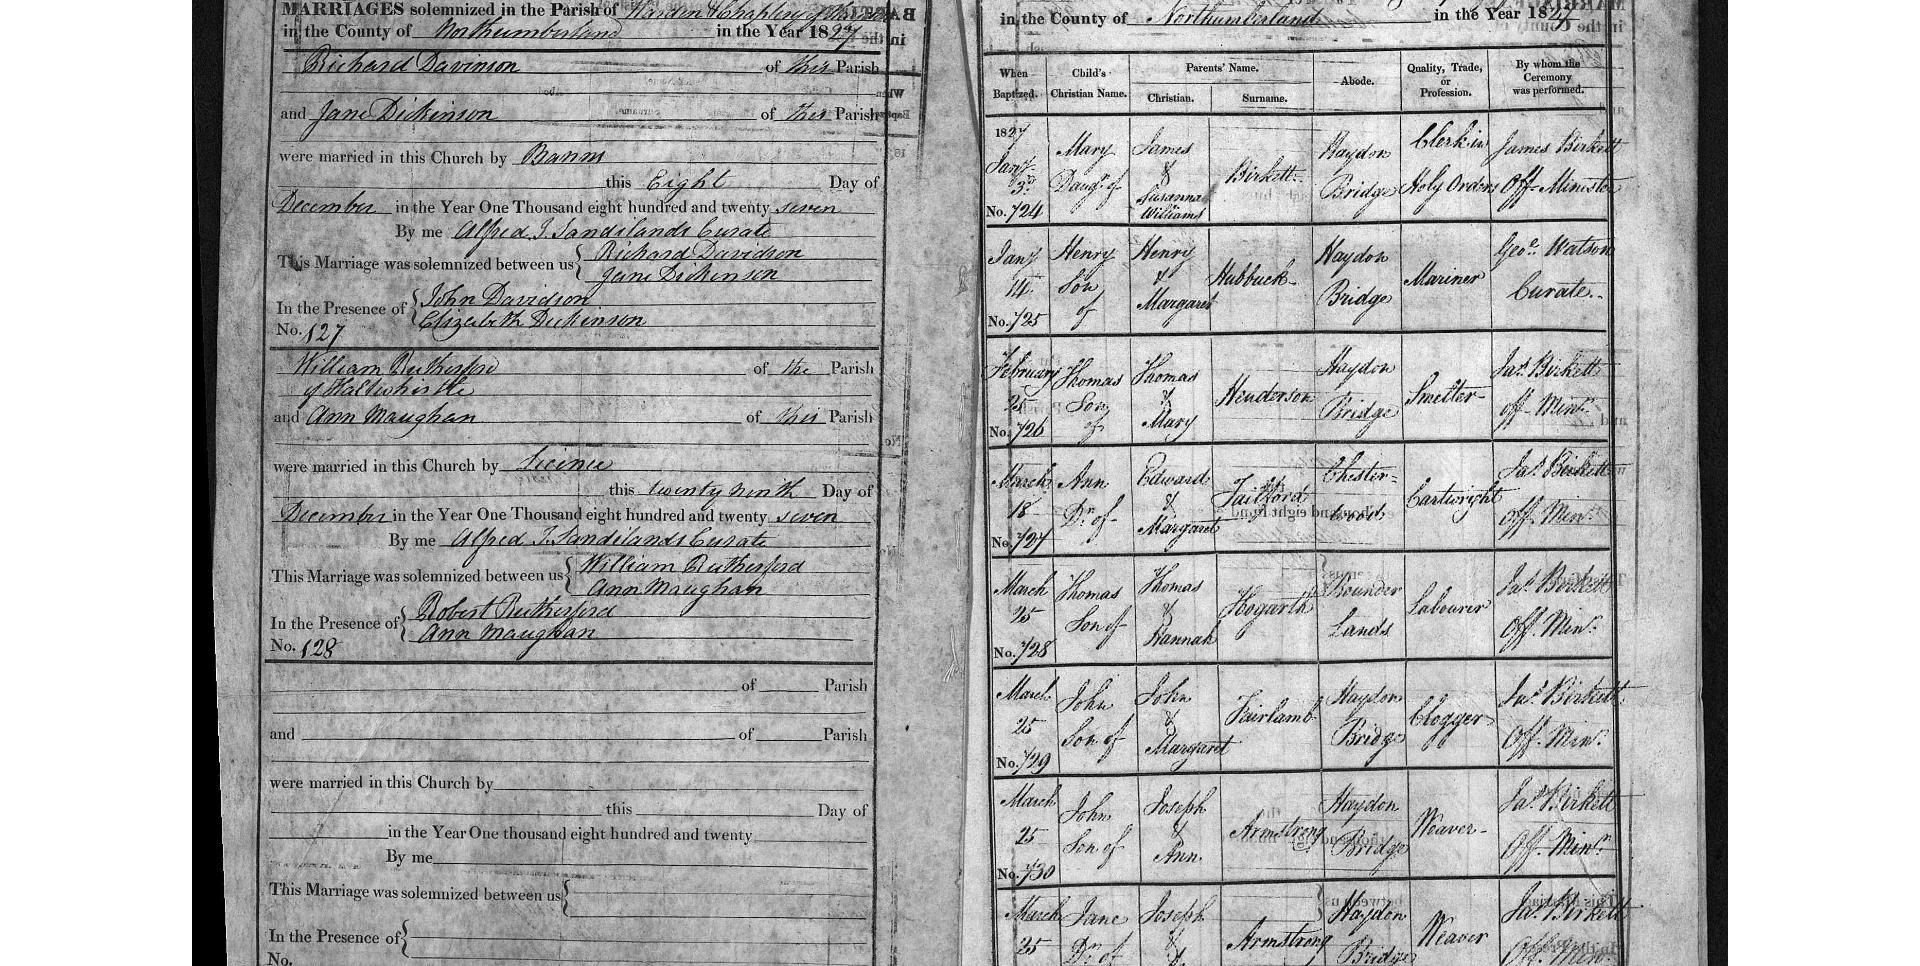 MARRIAGES solemnized in the Parish of Warden & Chaplery of
in the County of Northumberland in the Year 1827
Richard Davinson of this Parish
and Jane Dickinson of this Parish
were married in this Church by Banns
this Eight Day of
December in the Year One Thousand eight hundred and twenty seven
By me Alfred J. Sandilands Curate
This Marriage was solemnized between us { Richard Davidson
Jane Dickinson
In the Presence of { John Davidson
Elizabeth Dickinson
No. 127
William Rutherford of the Parish
of Haltwhistle
and Ann Maughan of this Parish
were married in this Church by Licence
this twenty ninth Day of
December in the Year One Thousand eight hundred and twenty seven
By me Alfred J. Sandilands Curate
This Marriage was solemnized between us { William Rutherford
Ann Maughan
In the Presence of { Robert Rutherford
Ann Maughan
No. 128
of Parish
and of Parish
were married in this Church by
this Day of
in the Year One thousand eight hundred and twenty
By me
This Marriage was solemnized between us {
In the Presence of {
No.
in the County of Northumberland in the Year 1827
When Baptized. Child's Christian Name. Parents' Name. Christian. Surname. Abode. Quality, Trade, or Profession. By whom the Ceremony was performed.
1827 Jany 3rd No. 724 Mary Daugr. of James & Susanna Williams Birkett Haydon Bridge Clerk in Holy Orders James Birkett Off. Minister
Jany 14 No. 725 Henry Son of Henry & Margaret Hubbuck Haydon Bridge Mariner Geoe. Watson Curate.
February 25 No. 726 Thomas Son of Thomas & Mary Henderson Haydon Bridge Smelter Jas. Birkett off. Minr.
March 18 No. 727 Ann Dr. of Edward & Margaret Tailford Chester= wood Cartwright Jas. Birkett Off. Minr.
March 25 No. 728 Thomas Son of Thomas & Hannah Hogarth Rounder Lands Labourer Jas. Birkett Off. Minr.
March 25 No. 729 John Son of John & Margaret Fairlamb Haydon Bridge Clogger Jas. Birkett Off. Minr.
March 25 No. 730 John Son of Joseph & Ann Armstrong Haydon Bridge Weaver Jas. Birkett Off. Minr.
March 25 Jane Dr. of Joseph & Armstrong Haydon Bridge Weaver Jas. Birkett Off. Minr.